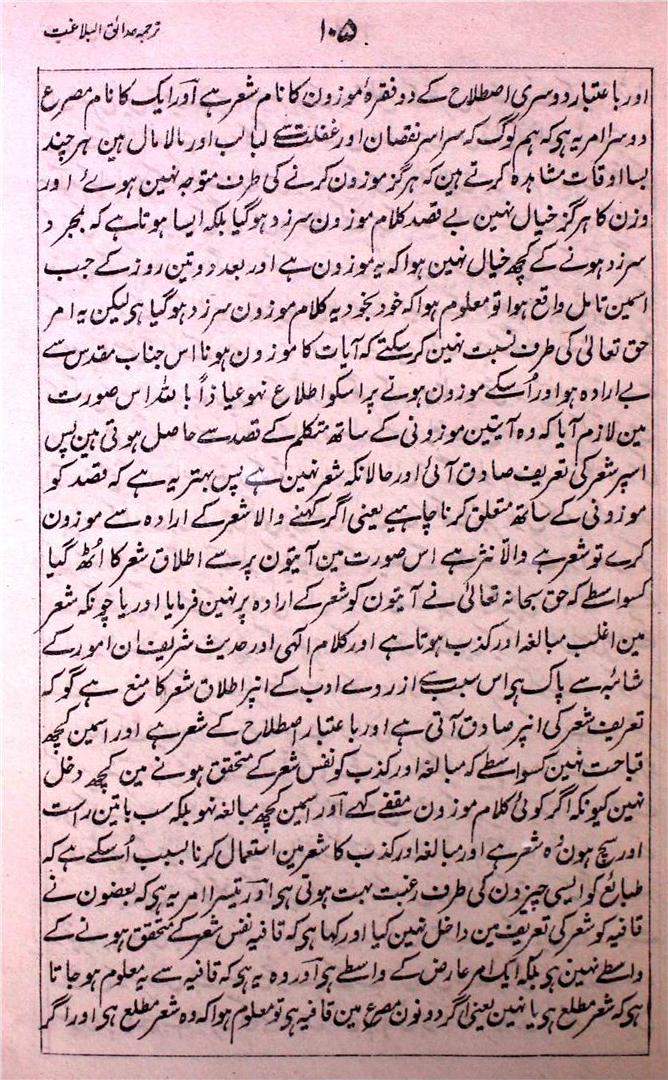 ترجمہ حدائق البلاغت
۱۰۵
اور باعتبار دوسری اصطلاح کے دو فقرۂ موزون کا نام شعر ہے اور ایک کا نام مصرع
دوسرا امر یہ ہی کہ ہم لوگ کہ سراسر نقصان اور غفلت سے لبالب اور مالا مال ہین ہر چند
بسا اوقات مشاہدہ کرتے ہین کہ ہرگز موزون کرنے کی طرف متوجہ نہین ہوئے اور
وزن کا ہرگز خیال نہین بے قصد کلام موزون سرزد ہوگیا بلکہ ایسا ہوتا ہے کہ بمجرد
سرزد ہونے کے کچھ خیال نہین ہوا کہ یہ موزون ہے اور بعد دو تین روز کے جب
اسمین تامل واقع ہوا تو معلوم ہوا کہ خود بخود یہ کلام موزون سرزد ہوگیا ہی لیکن یہ امر
حق تعالیٰ کی طرف نسبت نہین کر سکتے کہ آیات کا موزون ہونا اس جناب مقدس سے
بے ارادہ ہو اور اُسکے موزون ہونے پر اسکو اطلاع نہو عیاذاً باللہ اس صورت
مین لازم آیا کہ وہ آیتین موزونی کے ساتھ متکلم کے قصد سے حاصل ہوتی ہین پس
اسپر شعر کی تعریف صادق آئی اور حالانکہ شعر نہین ہے پس بہتر یہ ہے کہ قصد کو
موزونی کے ساتھ متعلق کرنا چاہیے یعنی اگر کہنے والا شعر کے ارادہ سے موزون
کرے تو شعر ہے والّا نثر ہے اس صورت مین آیتون پر سے اطلاق شعر کا اُٹھ گیا
کسواسطے کہ حق سبحانہ تعالیٰ نے آیتون کو شعر کے ارادہ پر نہین فرمایا اور یا چونکہ شعر
مین اغلب مبالغہ اور کذب ہوتا ہے اور کلام الٰہی اور حدیث شریف ان امور کے
شائبہ سے پاک ہی اس سبب سے از روے ادب کے انپر اطلاق شعر کا منع ہے گو کہ
تعریف شعر کی انپر صادق آتی ہے اور باعتبار اصطلاح کے شعر ہے اور اسمین کچھ
قباحت نہین کسواسطے کہ مبالغہ اور کذب کو نفس شعر کے متحقق ہونے مین کچھ دخل
نہین کیونکہ اگر کوئی کلام موزون مقفے کہے اور اسمین کچھ مبالغہ نہو بلکہ سب باتین راست
اور سچ ہون وُہ شعر ہے اور مبالغہ اور کذب کا شعر مین استعمال کرنا بسبب اُسکے ہے کہ
طبائع کو ایسی چیزون کی طرف رغبت بہت ہوتی ہی اور تیسرا امر یہ ہی کہ بعضون نے
قافیہ کو شعر کی تعریف مین داخل نہین کیا اور کہا ہی کہ قافیہ نفس شعر کے متحقق ہونے کے
واسطے نہین ہی بلکہ ایک امر عارض کے واسطے ہی اور وہ یہ ہی کہ قافیہ سے یہ معلوم ہو جاتا
ہی کہ شعر مطلع ہی یا نہین یعنی اگر دونون مصرع مین قافیہ ہی تو معلوم ہوا کہ وہ شعر مطلع ہی اور اگر